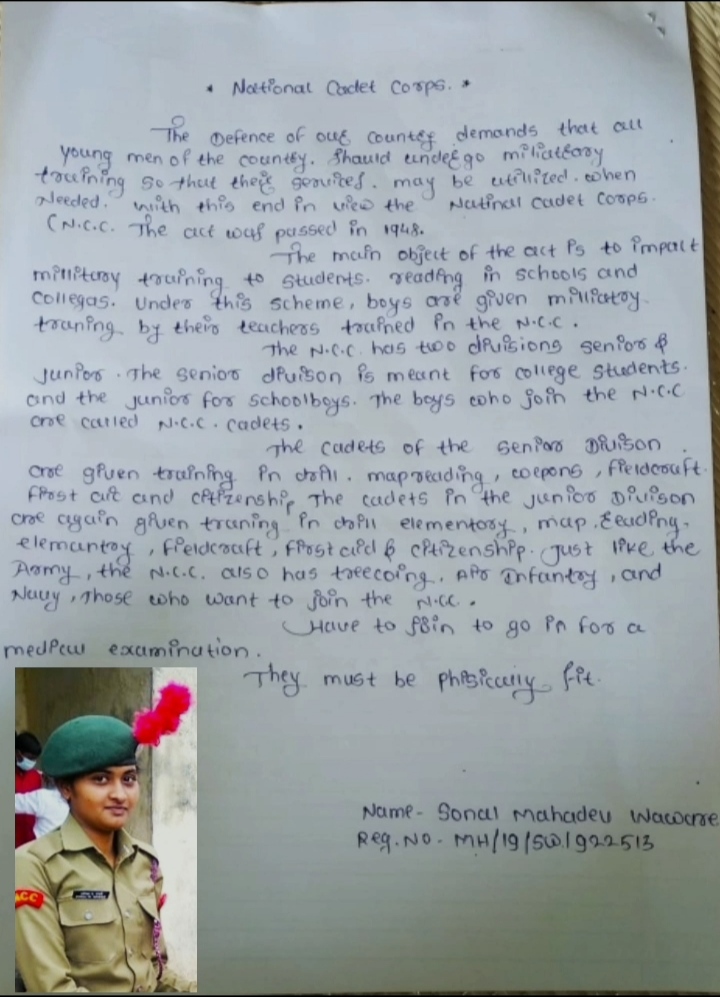 * National Cadet Corps. *
The Defence of our country demands that all
young men of the country. Should undergo miliateary
training so that their services. may be utilized. when
needed. with this end in view the Natinal cadet Corps.
(N.C.C. The act was passed in 1948.
The main object of the act is to impact
millitary training to students. reading in schools and
collegas. Under this scheme, boys are given milliatry
traning by their teachers trained in the N.C.C.
The N.C.C. has two divisions senior &
junior. The senior divison is meant for college students.
and the junior for schoolboys. The boys who join the N.C.C
are called N.C.C. cadets.
The cadets of the senior Divison
are given training in drill. mapreading, wepons, fieldcraft.
first and citizenship The cadets in the junior Divison
are again given traning in drill elementory, map. reading.
elemantry, fieldcraft, first aid & citizenship. just like the
Army, the N.C.C. also has Air Infantry, and
Navy, Those who want to join the N.CC.
Have to join to go in for a
medical examination.
They must be phisically fit.
Name- Sonal Mahadev Waware
Reg.No- MH/19/SW/922513
CC